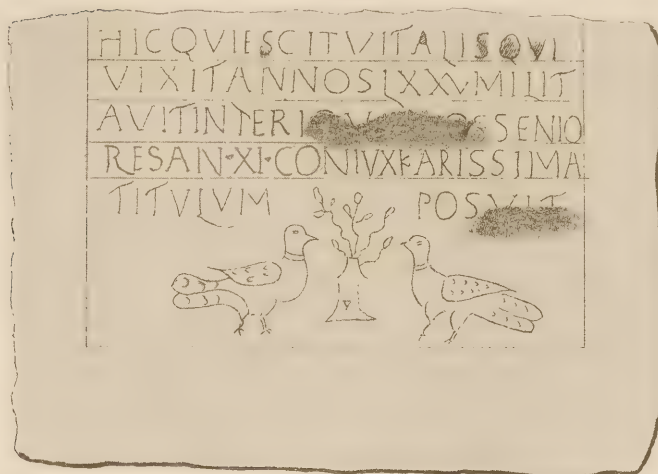 HICQVIESCITVITALISQVI
VIXITANNOSLXXVMILIT
AVITINTER SENIO
RESAN·XI·CONIVXKARISSIMA
TITVLVM POSVIT